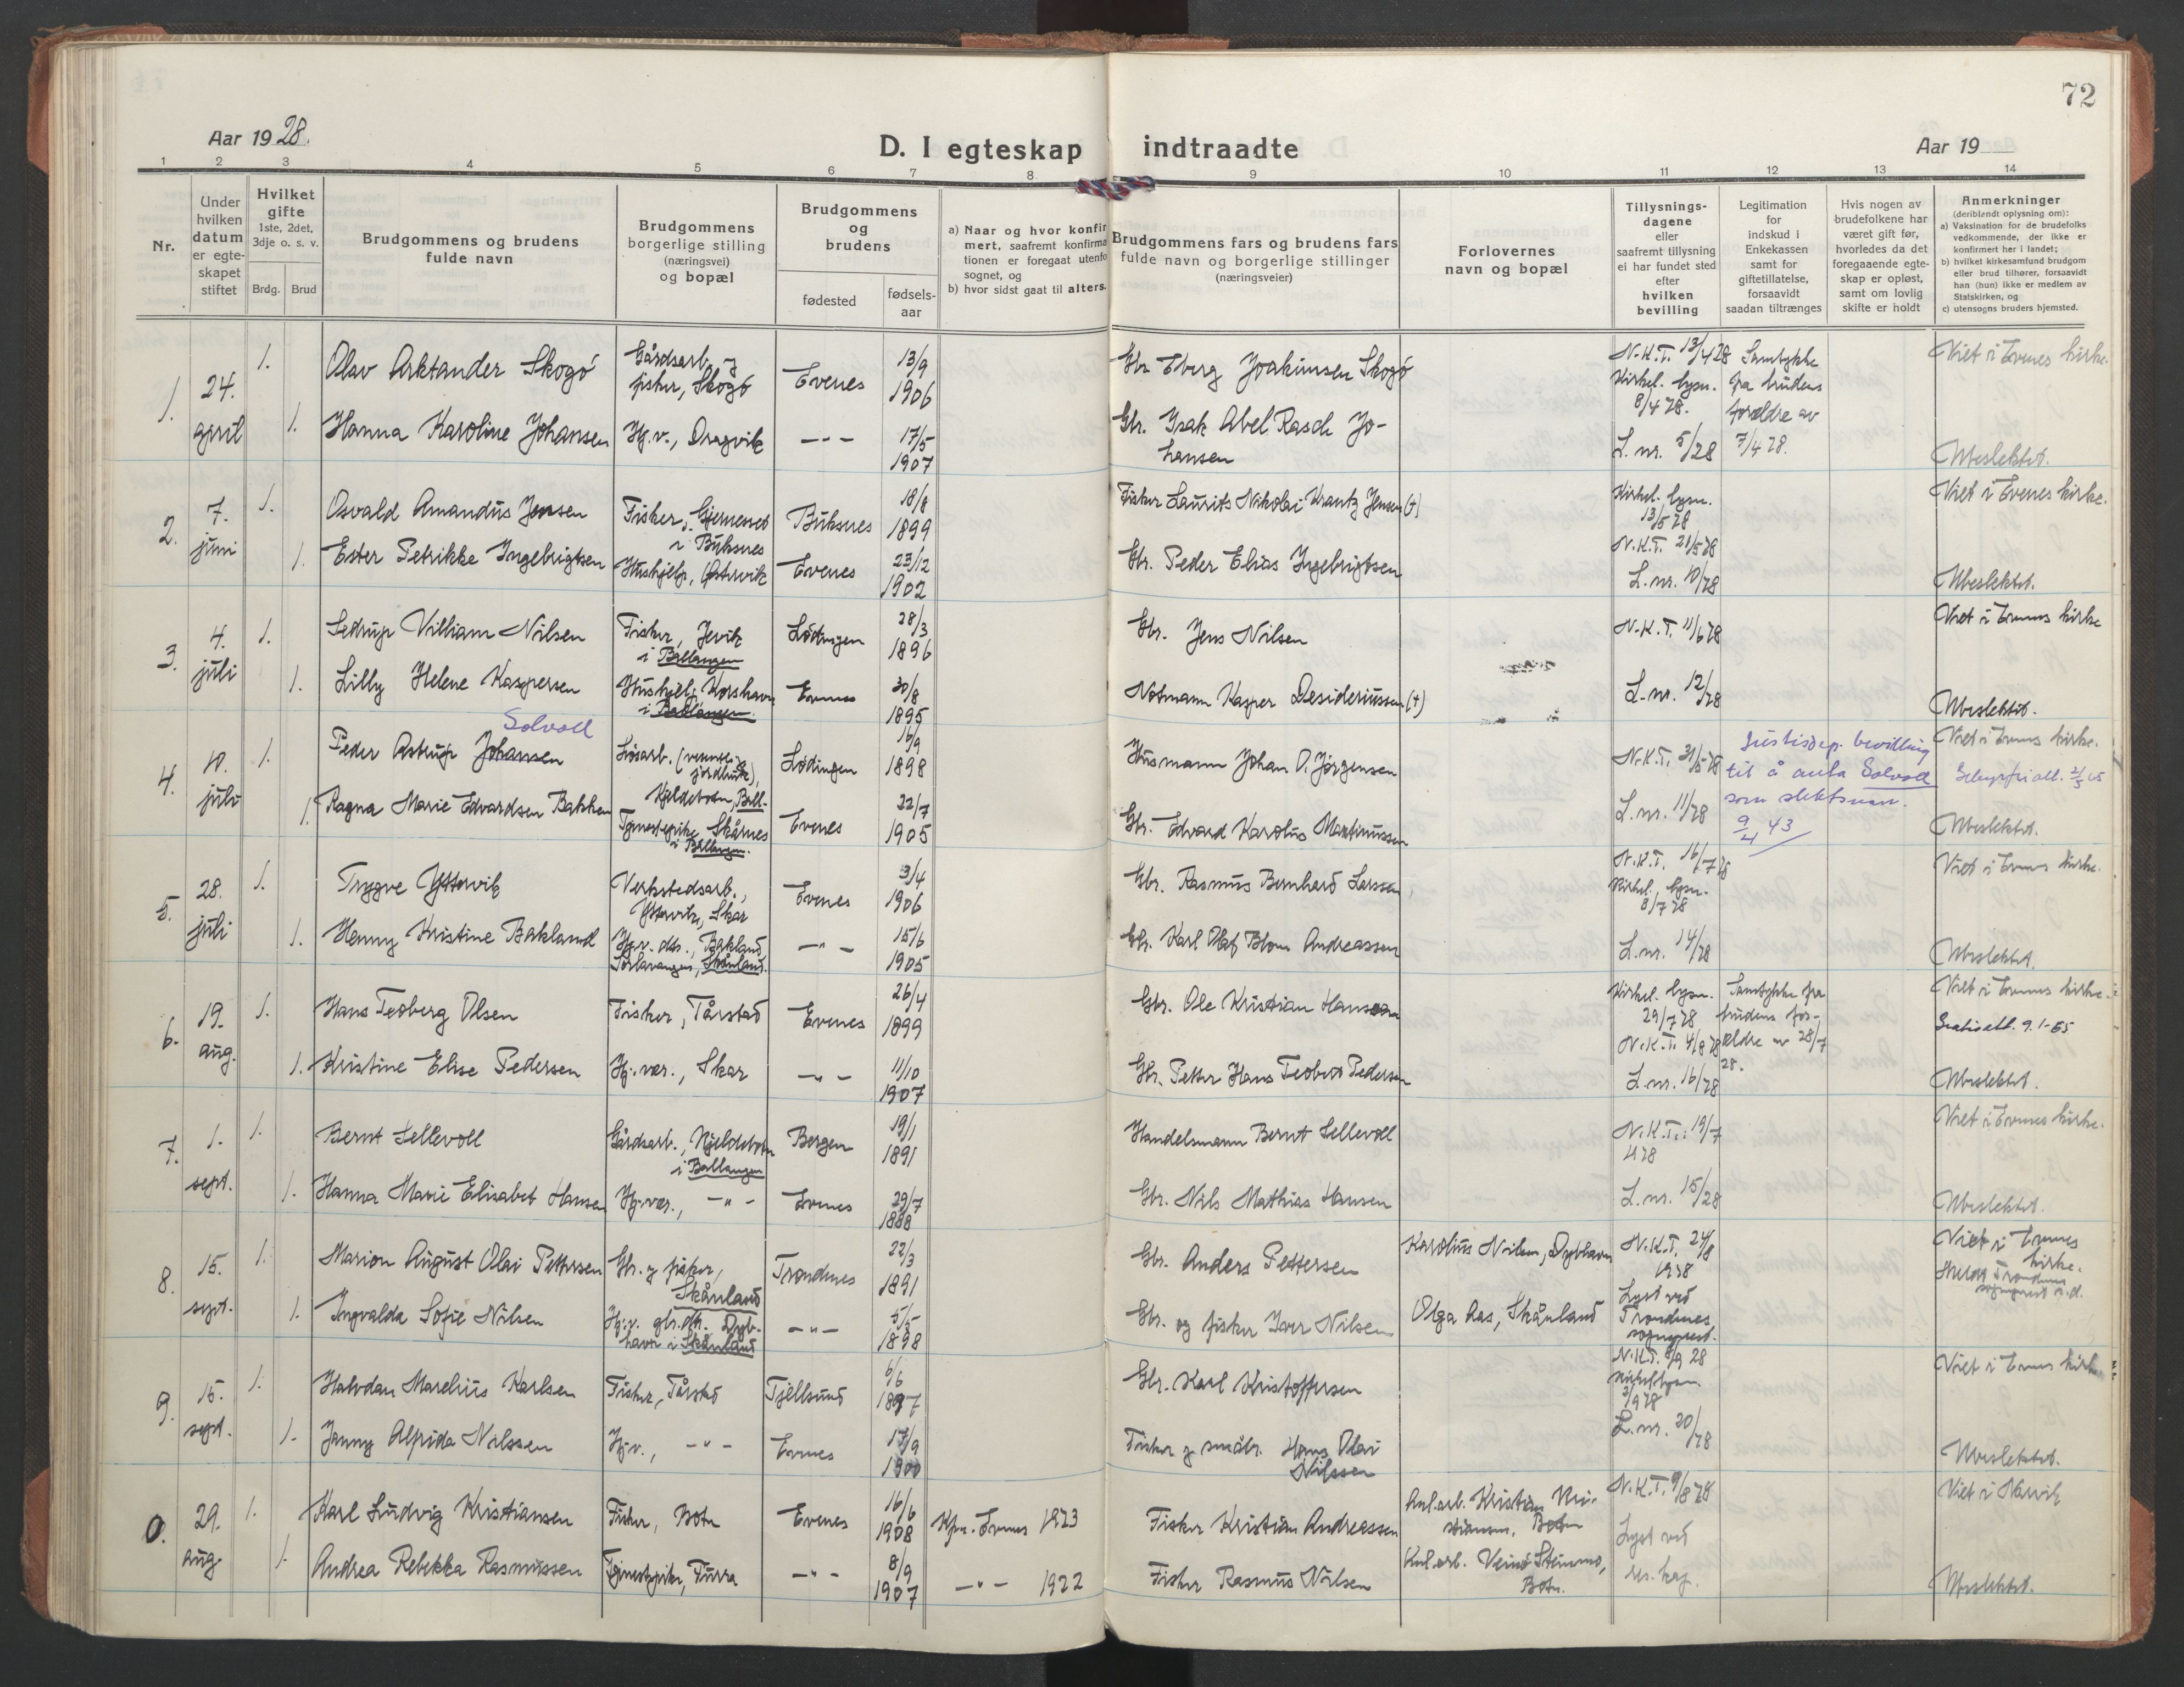 72
Aar 1928.
D. I egteskap indtraadte
Aar 19
1 2 3 4 5 6 7 8 9 10 11 12 13 14
Nr.
Under
hvilken
datum
er egte-
skapet
stiftet
Hvilket
gifte
1ste, 2det,
3dje o. s. v.
Brdg. Brud
Brudgommens og brudens
fulde navn
Brudgommens
borgerlige stilling
(næringsvei)
og bopæl
Brudgommens
og
brudens
fødested
fødsels-
aar
a) Naar og hvor konfir
mert, saafremt konfirma
tionen er foregaat utenfo
sognet, og
b) hvor sidst gaat til alters.
Brudgommens fars og brudens fars
fulde navn og borgerlige stillinger
(næringsveier)
Forlovernes
navn og bopæl
Tillysnings-
dagene
eller
saafremt tillysning
ei har fundet sted
efter
hvilken
bevilling
Legitimation
for
indskud i
Enkekassen
samt for
giftetillatelse,
forsaavidt
saadan tiltrænges
Hvis nogen av
brudefolkene har
været gift før,
hvorledes da det
foregaaende egte-
skap er opløst,
samt om lovlig
skifte er holdt
Anmerkninger
(deriblandt oplysning om):
a) Vaksination for de brudefolks
vedkommende, der ikke er
konfirmert her i landet;
b) hvilket kirkesamfund brudgom
eller brud tilhører, forsaavidt
han (hun) ikke er medlem av
Statskirken, og
c) utensogns bruders hjemsted.
1. 24. april
1. Olav Arktander Skogø
Gårdsarb. og
fisker, Skogø
Evenes
13/9
1906
Gbr. Eberg Joakimsen Skogø
N.K.T. 13/4 28
Kirkel. lysn.
8/4 28.
Samtykke
fra brudens
foreldre av
7/4 28.
Viet i Evenes kirke.
1. Hanna Karoline Johansen
Hj.v., Dragvik
- - -
17/5
1907
Gbr. Isak Abel Rasch Jo-
hansen
L. nr. 5/28
Ubeslektet.
2. 7. juni
1. Osvald Amandus Jensen
Fisker, Gjernesset
i Buksnes
Buksnes
18/8
1899
Fisker Laurits Nikolai Krantz Jensen (+)
Kirkel. lysn.
13/5 28
Viet i Evenes kirke.
1. Ester Petrikke Ingebrigtsen
Hushjelp, Østervik
Evenes
23/12
1902
Gbr. Peder Elias Ingebrigtsen
N.K.T. 21/5 28
L. nr. 10/28
Ubeslektet.
3. 4. juli
1. Sedrup Villiam Nilsen
Fisker, Jevik
i Ballangen
Lødingen
28/3
1896
Gbr. Jens Nilsen
N.K.T. 11/6 28
Viet i Evenes kirke
1. Lilly Helene Kaspersen
Hushjel. Korshavn
i Ballangen.
Evenes
30/8
1895
Notmann Kasper Desideriussen (+)
L. nr. 12/28
Ubeslektet.
4. 10. juli
Solvoll
1. Peder Astrup Johansen
Kjeldebotn, Ball-
Lødingen
16/9
1898
Husmann Johan O. Jørgensen
N.K.T. 31/5 28
Justisdep. bevilling
til å anta Solvoll
som slektsnavn.
9/4 43
Viet i Evenes kirke.
1. Ragna Marie Edvardsen Bakken
Tjenestepike Skårnes
i Ballangen.
Evenes
22/7
1905
Gbr. Edvard Karolus Martinussen
L. nr. 11/28
Ubeslektet.
5. 28. juli
1. Trygve Yttervik
Verkstedsarb.,
Yttervik, Skar
Evenes
3/4
1906
Gbr. Rasmus Bernhard Larssen
N.K.T. 16/7 28
Kirkel. lysn.
8/7 28
Viet i Evenes kirke.
1. Henny Kristine Bakland
Hj.v. dtr., Bakland,
Torlavangen, Skånland.
- " -
15/6
1905
Gbr. Karl Olaf Blom Andreassen
L. nr. 14/28
Ubeslektet.
6. 19. aug.
1. Hans Tedberg Olsen
Fisker, Tårstad
Evenes
26/4
1899
Gbr. Ole Kristian Hansen
Kirkel. lysn.
29/7 28
N.K.T. 4/8 28
Samtykke fra
brudens for-
eldre av 28/7
28.
Viet i Evenes kirke.
Gratis att. 9.1-65
1. Kristine Elise Pedersen
Hj.vær., Skar
- " -
11/10
1907
Gbr. Petter Hans Teober Pedersen
L. nr. 16/28
Ubeslektet.
7. 1. sept.
1. Bernt Sellevoll
Gårdsarb., Kjeldebotn
i Ballangen
Bergen
19/1
1891
Handelsmann Bernt Sellevoll
N.K.T.: 19/7
28
Viet i Evenes kirke.
1. Hanna Marie Elisabet Hansen
Hj.vær., - " -
Evenes
29/7
1888
Gbr. Nils Matthias Hansen
L. nr. 15/28
Ubeslektet.
8. 15. sept.
1. Marion August Olai Pettersen
Gbr. og fisker,
Skånland
Trondenes
22/3
1891
Gbr. Anders Pettersen
Karolius Nilsen, Dybhavn
N.K.T. 24/8
1928
Viet i Evenes
kirke.
1. Ingvalda Sofie Nilsen
Hj.v. gbr.dtr. Dyb-
havn i Skånland
- " -
5/5
1898
Gbr. og fisker Iver Nilsen
Olga Aas, Skånland
Lyst ved
Trondenes
sogneprest.
9. 15. sept.
1. Halvdan Marelius Karlsen
Fisker, Tårstad
Tjellsund
6/6
1897
Gbr. Karl Kristoffersen
N.K.T. 8/9 28
Kirkel. lysn.
2/9 28
Viet i Evenes kirke
1. Jenny Alfrida Nilssen
Hj.v., - " -
Evenes
17/9
1900
Fisker og småbr. Hans Olai
Nilssen
L. nr. 20/28
Ubeslektet.
0. 29. aug.
1. Karl Ludvig Kristiansen
Fisker, Botn
Evenes
16/6
1908
Kfm. Evenes 1923
Fisker Kristian Andreassen
Anl.arb. Kristian Kri-
stiansen, Botn
N.K.T. 9/8 28
Viet i Narvik
1. Andrea Rebekka Rasmussen
Tjenestepike, Turra
- " -
8/9
1907
- " - 1922
Fisker Rasmus Nilsen
Botn.
Lyst ved
res. kap.
Ubeslektet.